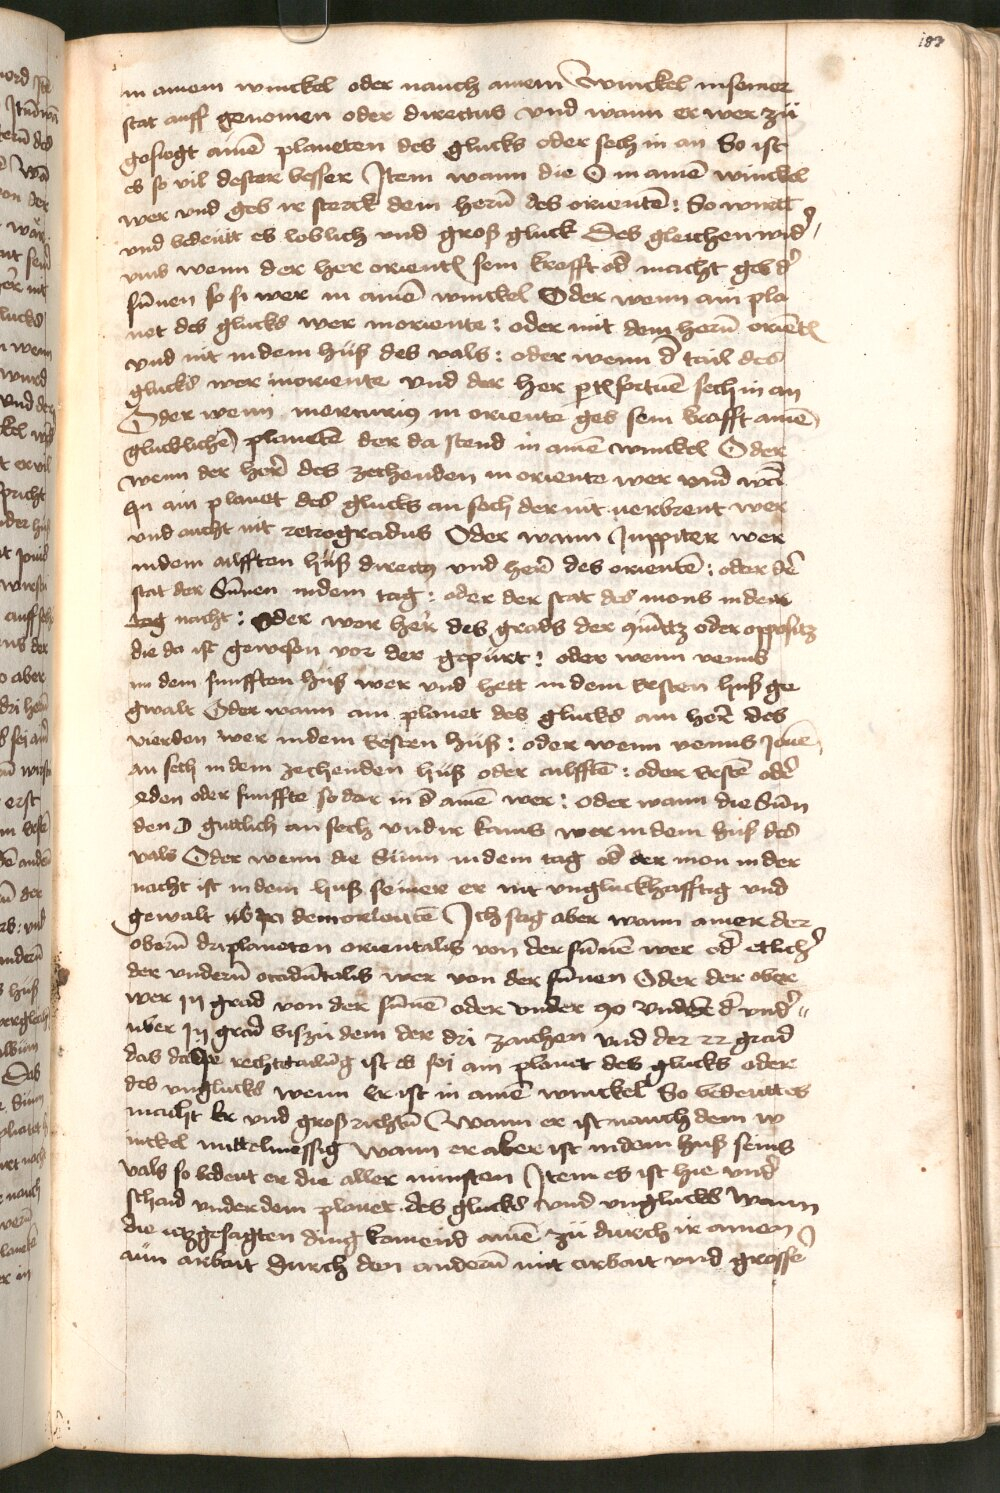 183
in ainem winckel oder nauch ainem Winckel in seiner
stat auff genomen oder directus vnd wann er wer zů
gefůgt ainē planeten des glucks oder sech in an So ist
es so vil dester besser Item wann die ☉ in ainē winckel
wer vnd geb ir sterck dem herñ des orientē : So wirtt
vnd bedeutt es loblich vnd groß gluck Des gleichen wid͛
vmb wenn der her orient͛ sein krafft od͛ macht geb d͛
sũnen so si wer in ainē winckel Oder wenn ain pla
net des glucks wer in oriente : oder mit dem herñ oriēt͛
vnd nit in dem huß des vals : oder wenn d͛ tail des
glucks wer in oriente vnd der her pt͛ fortuē sech in an
Oder wenn mercurius in oriente geb sein krafft ainē
glucklichē planetē der da stend in ainē winckel Oder
wenn der herr̄ des zechenden in oriente wer vnd
in ain planet des glucks an sech der nit verbrent wer
vnd aucht nit retrogradus Oder wann Juppiter wer
in dem ailfften huß directus vnd herr̄ des orientē : oder d͛
stat der Sũnen in dem tag : oder der stat des mons in der
tag nacht : oder wer her̄ des grads der oder oppositz
die da ist gewesen vor der gepurt : oder wenn venus
in dem funfften huß wer vnd hett in dem ersten huß ge
gwalt Oder wann ain planet des glucks ain herr̄ des
vierden wer in dem ersten huß : oder wenn venus Jouē
an sech in dem zechenden huß oder ailfftē : oder erstē od͛
oder funffte so dar in d͛ ainē wer : oder wann die Sũn
den ☽ guttlich an sech vnd ir kains wer in dem huß des
vals Oder wenn die Sunn in dem tag od͛ der mon in der
nacht ist in dem huß seiner er nit vngluckhafftig vnd
gewalt dem orientē Ich sag aber wann ainer der
oberñ dri planeten orientalis von der sũnē wer od͛ etlich͛
der vnderñ occidētalis wer von der sũnen Oder der ober
wer grad von der sũnē oder vnder 90 vnd d͛ vnd͛
vber grad biß zů dem der dri zaichen vnd der 22 grad
das rechtgang ist es sei ain planet des glucks oder
des vnglucks wenn er ist in ainē winckel So bedeuttes
macht er vnd groß richtũ Wann er ist nauch dem w
inckel mittelmessig Wann er aber ist in dem huß seins
vals so bedeut er die aller minsten Item es ist hie vnd͛
schaid vnder dem planet des glucks vnd vnglucks Wann
die ietzgesagten ding komend ainē zů durch ir ainen
aun arbait Durch den anderñ mit arbait vnd grosse